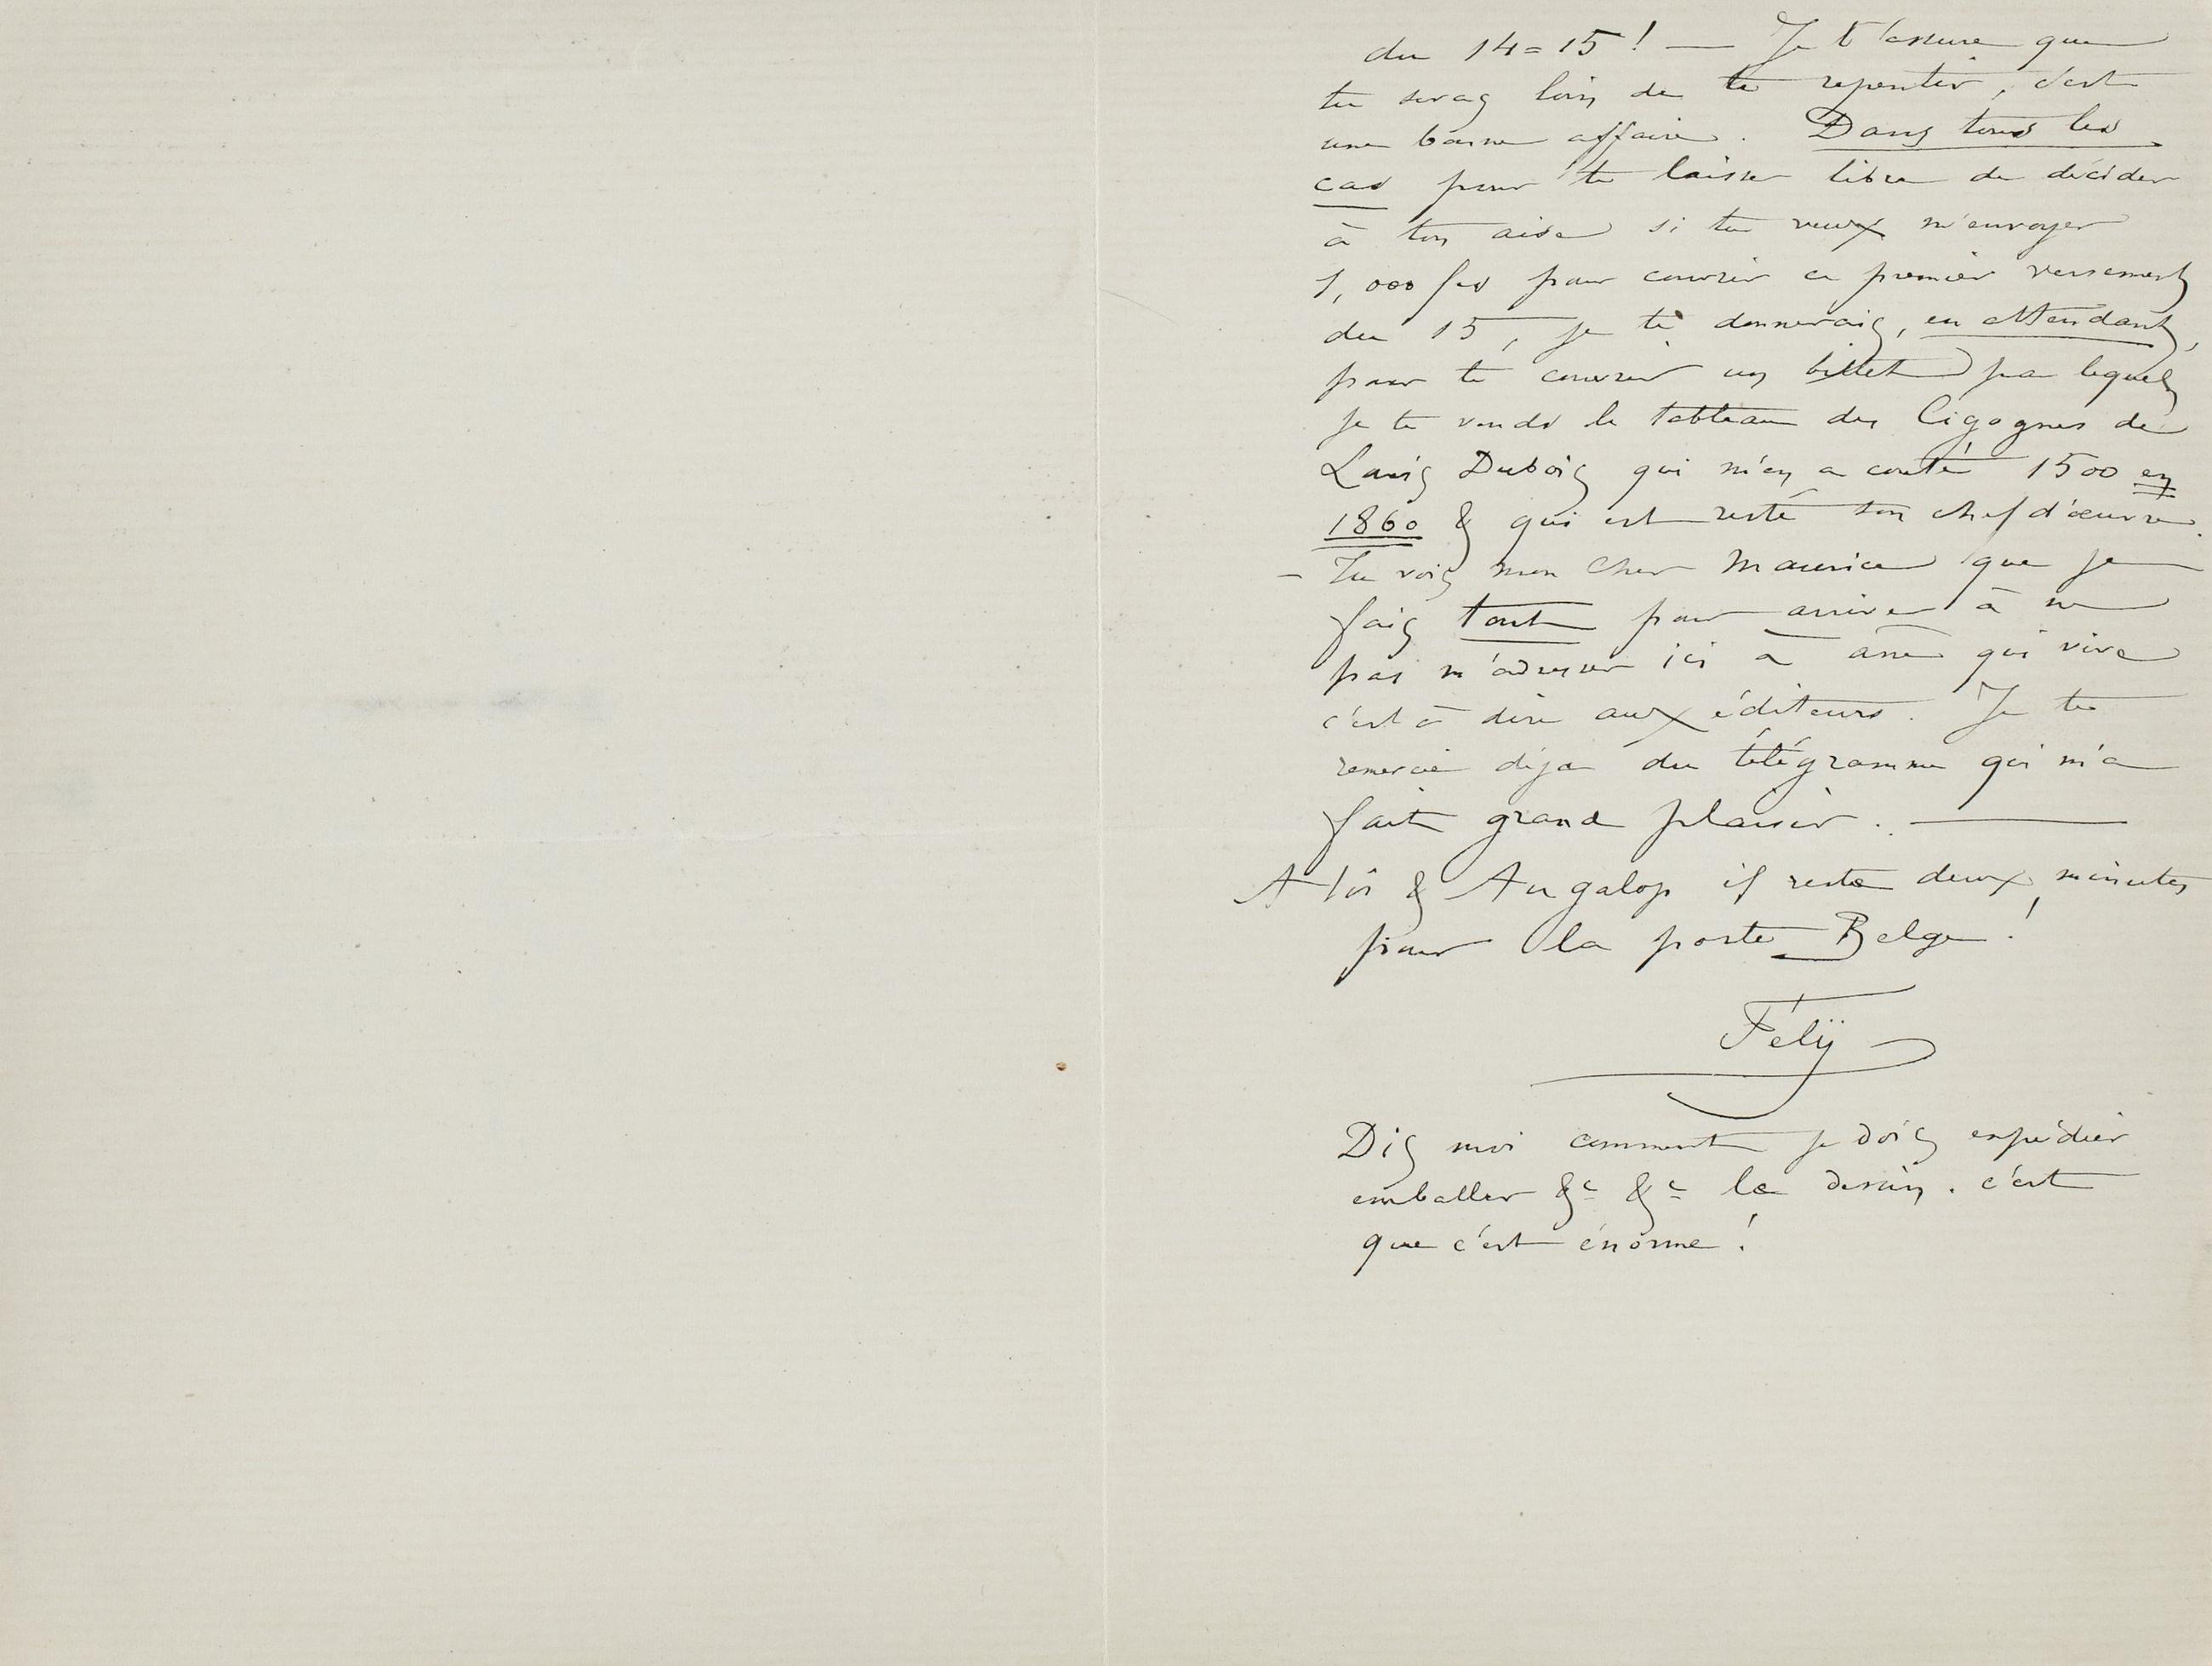 du 14=15 ! — Je t'assure que
tu seras loin de te repentir, c'est
une bonne affaire. Dans tous les
cas pour te laisser libre de décider
à ton aise si tu veux m'envoyer
1,000 frs pour couvrir ce premier versement
du 15, je te donnerais, en attendant,
pour te couvrir un billet par lequel
je te vends le tableau des Cigognes de
Louis Dubois qui m'en a couté 1500 en
1860 & qui est resté son chef d'œuvre.
– Tu vois mon cher Maurice que je
fais tout pour arriver à ne
pas m'adresser ici à âme qui vive
c'est à dire aux éditeurs. Je te
remercie déja du télégramme qui m'a
fait grand plaisir. —
A toi & Au galop il reste deux minutes
pour la poste Belge !
Fély
Dis moi comment je dois expédier
emballer &c &c le dessin. c'est
que c'est énorme !